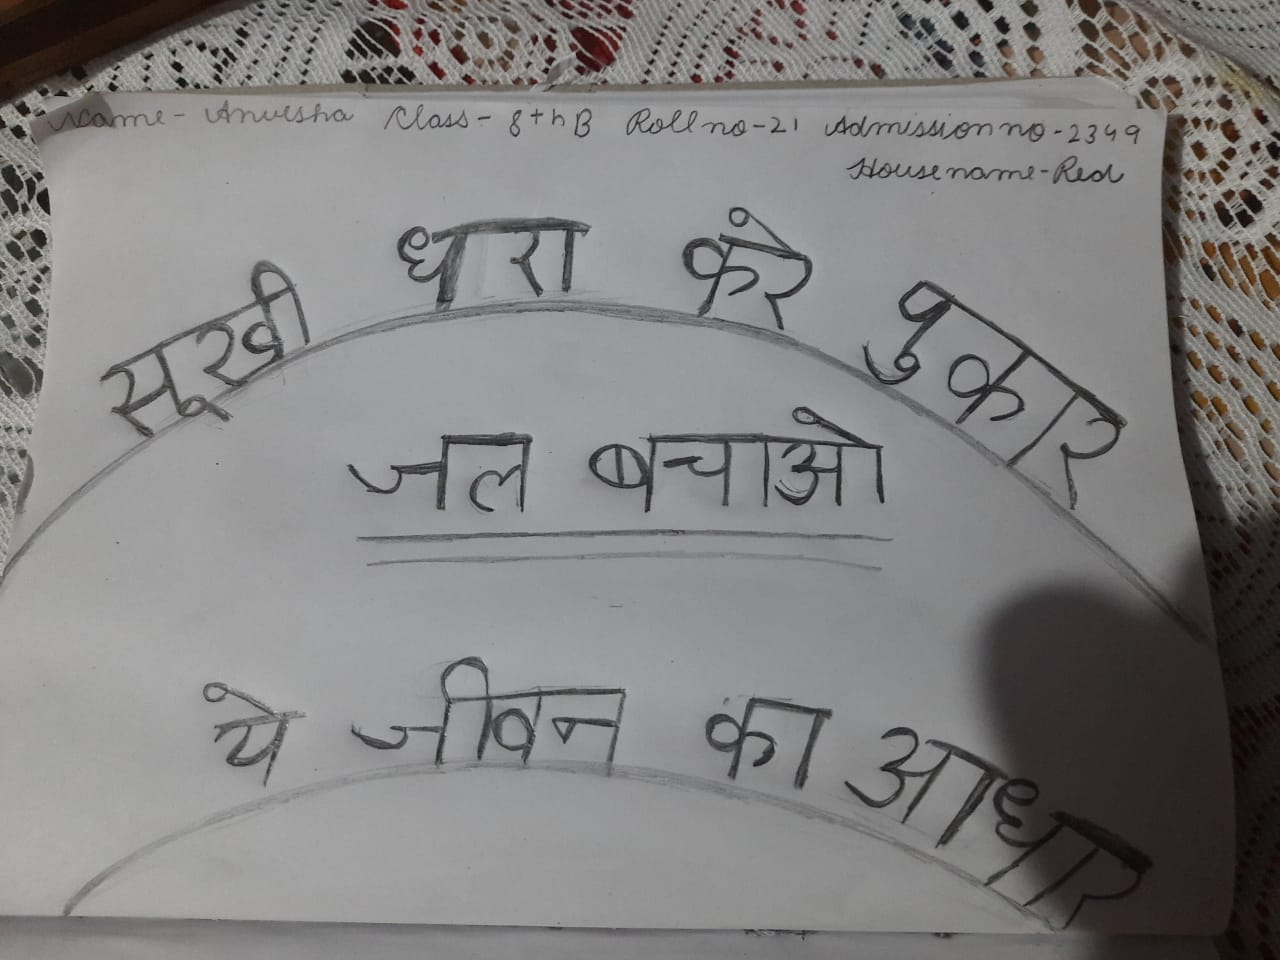 Name - Anvesha Class - 8th B Roll no - 21 Admission no - 2349
House name - Red
सूखी धारा करे पुकार
जल बचाओ
ये जीवन का आधार